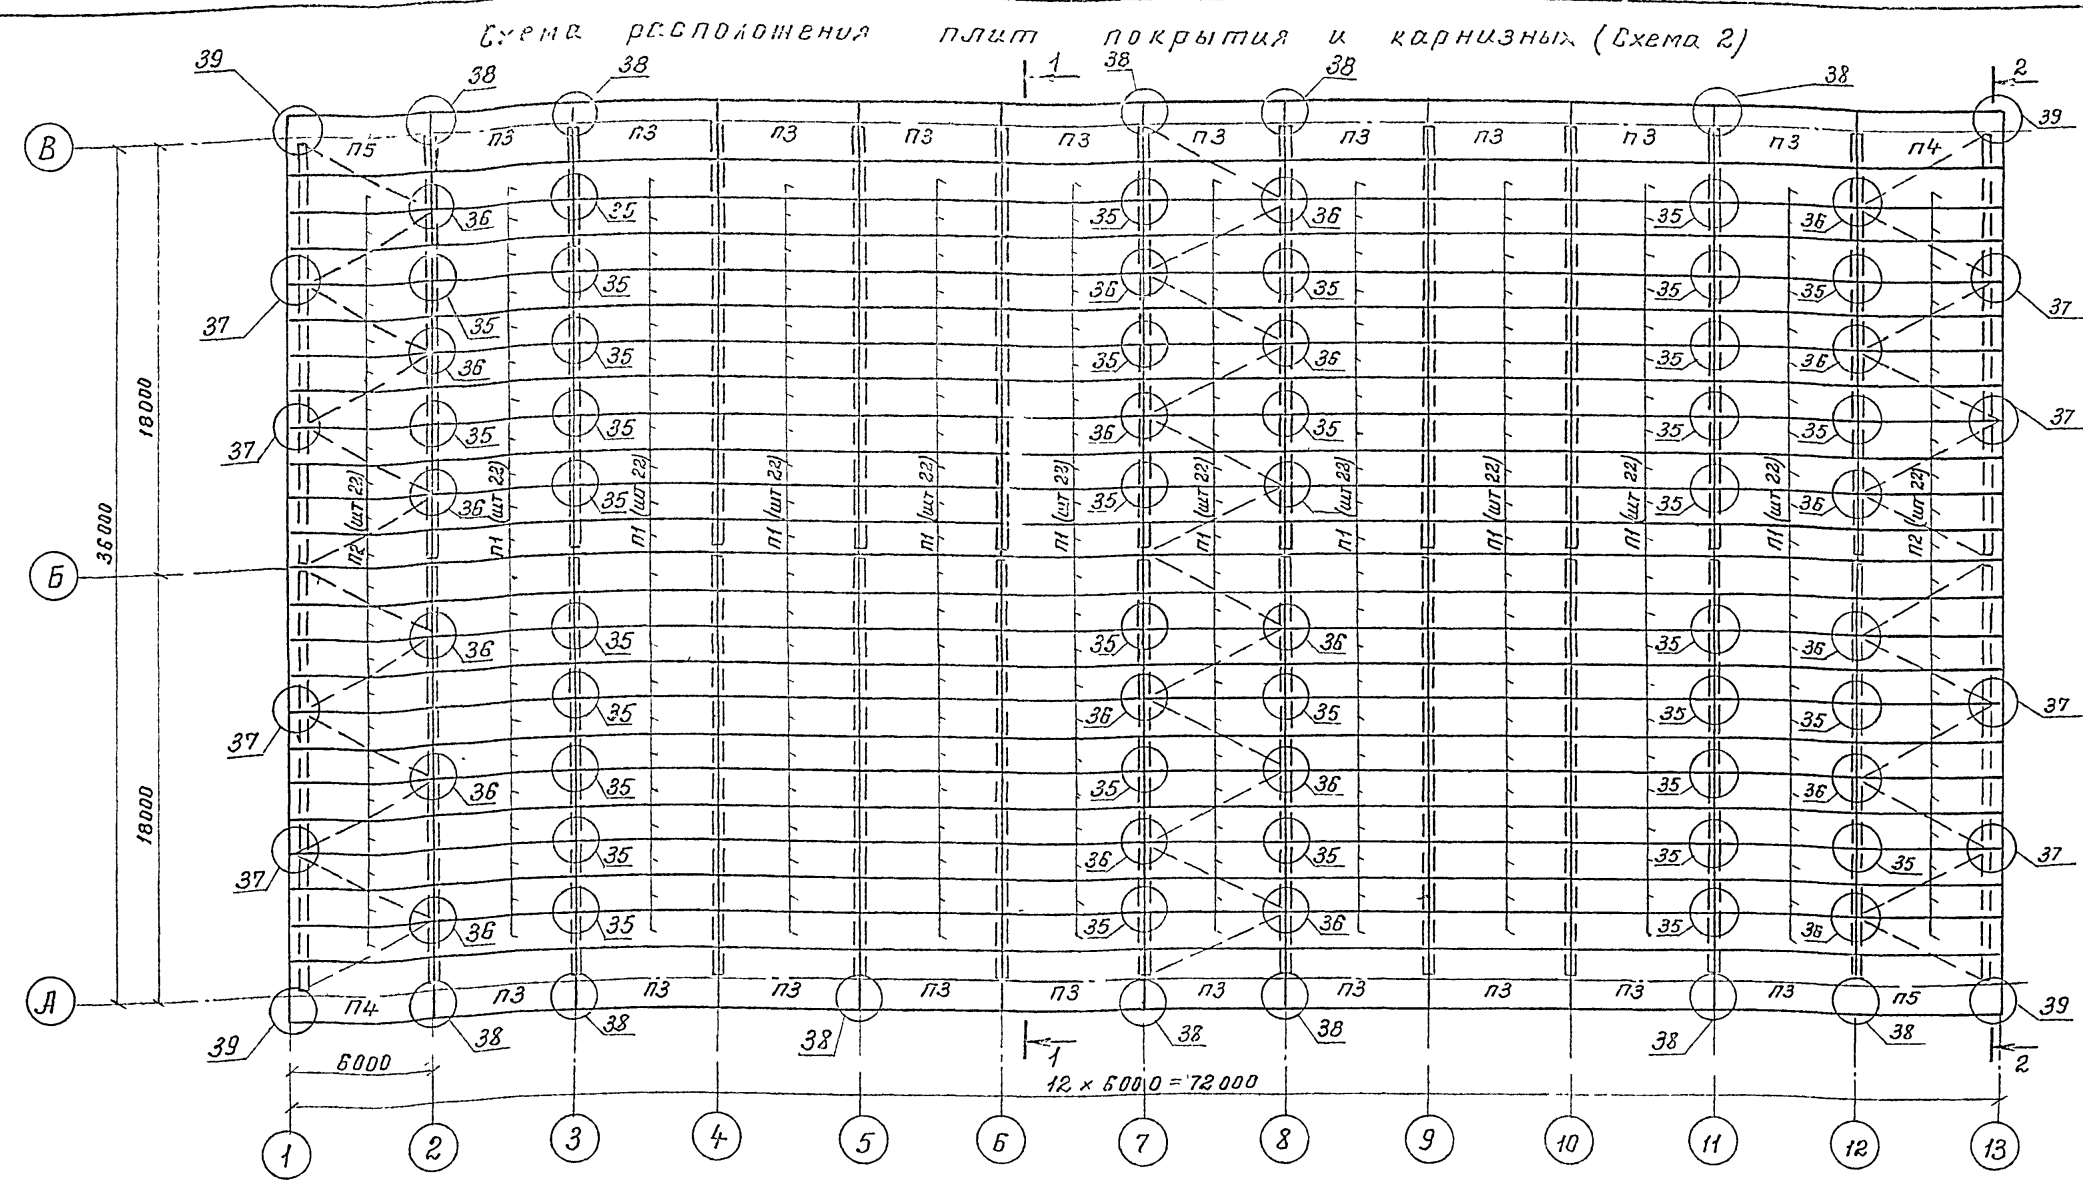 Схема расположения плит покрытия и карнизных (Схема 2)
39 38 38 1 38 38 38 2
В п5 п3 п3 п3 п3 п3 п3 п3 п3 п3 п3 п4 39
36 35 35 36 35 36
37 35 35 36 35 35 35 37
36 35 35 36 35 36
37 35 35 36 35 35 35 37
36 35 35 35 36
18000
36000
п2 (шт 22) п1 (шт 22) п1 (шт 22) п1 (шт 22) п1 (шт 22) п1 (шт 22) п1 (шт 22) п1 (шт 22) п1 (шт 22) п1 (шт 22) п1 (шт 22) п2 (шт 22)
Б
36 35 35 36 35 36
37 35 36 35 35 35 37
36 35 35 36 35 36
18000
37 35 36 35 35 35 37
36 35 35 36 35 36
А п4 п3 п3 п3 п3 п3 п3 п3 п3 п3 п3 п5 39
39 38 38 38 1 38 38 38 38 2
6000
12 × 6000 = 72000
1 2 3 4 5 6 7 8 9 10 11 12 13